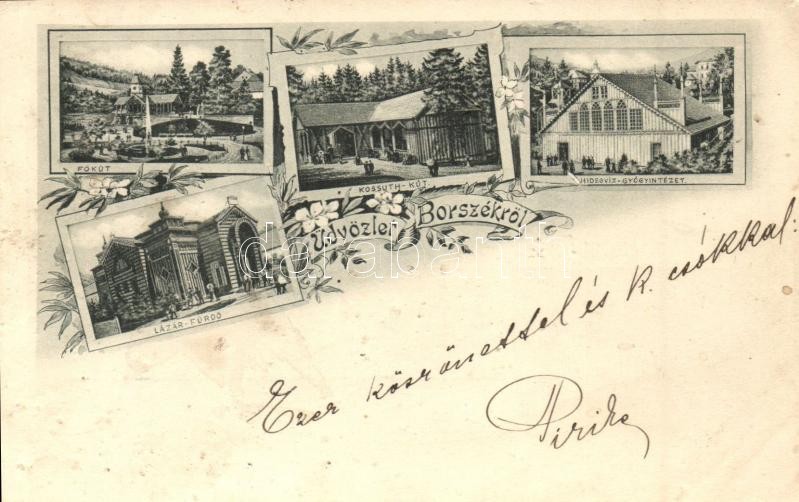 FŐKÚT
KOSSUTH-KÚT
HIDEGVÍZ-GYÓGYINTÉZET
LÁZÁR-FÜRDŐ
Üdvözlet Borszékről
darabanth
Ezer köszönettel és k. csókkal:
Pirike